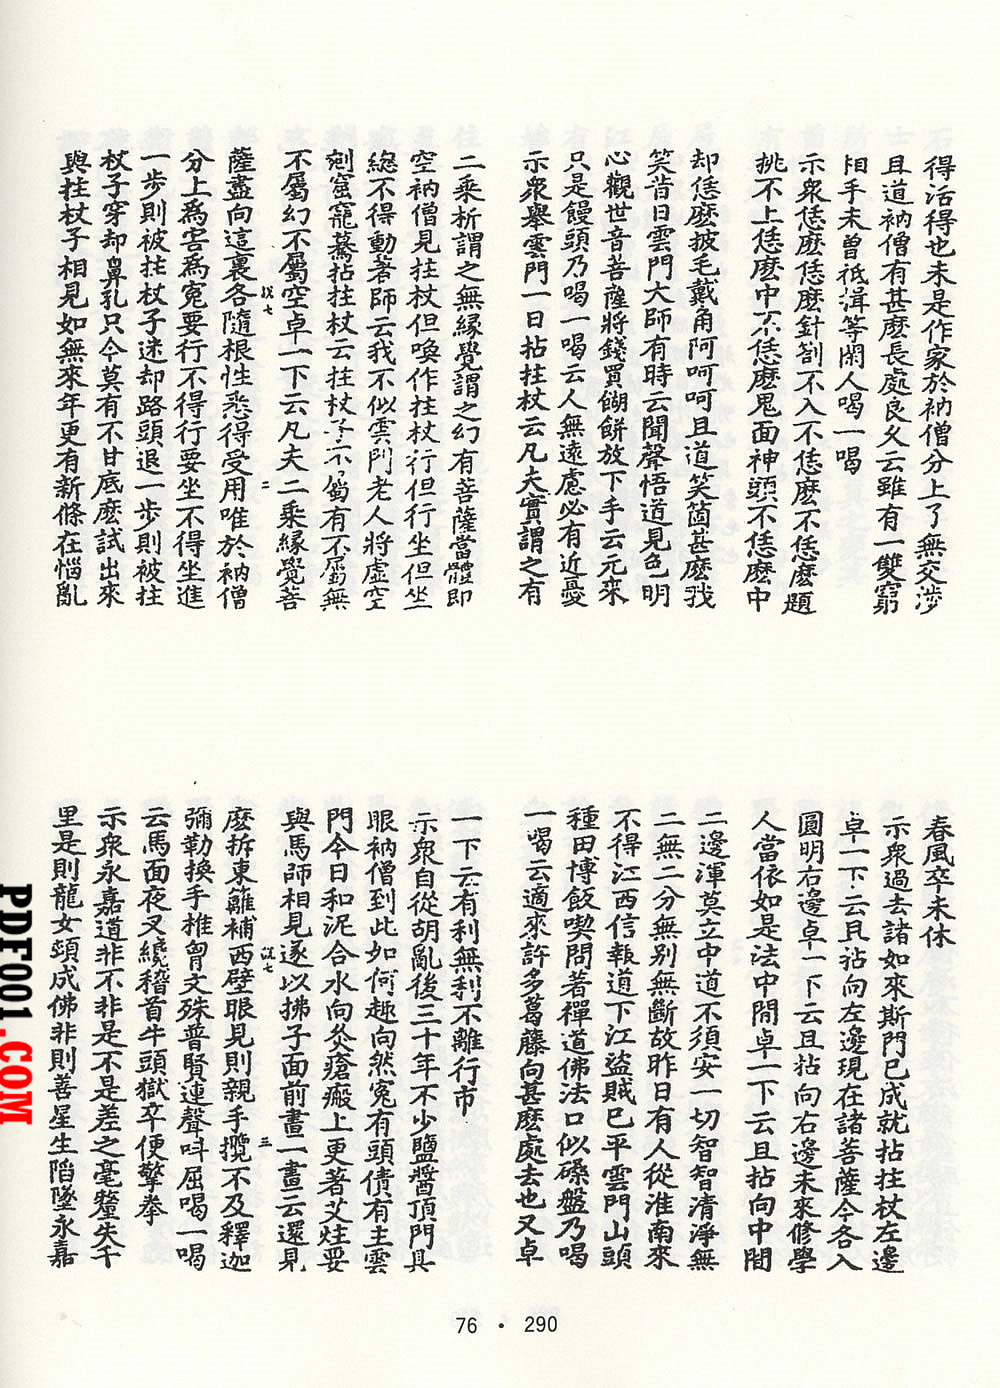 得活得也未是作家於衲僧分上了無交涉
且道衲僧有甚麼長處良久云雖有一雙窮
相手未曾祗揖等閑人喝一喝
示衆恁麼恁麼針劄不入不恁麼不恁麼題
挑不上恁麼中不恁麼鬼面神頭不恁麼中
却恁麼披毛戴角阿呵呵且道笑箇甚麼我
笑昔日雲門大師有時云聞聲悟道見色明
心觀世音菩薩將錢買餬餅放下手云元來
只是饅頭乃喝一喝云人無遠慮必有近憂
示衆舉雲門一日拈拄杖云凡夫實謂之有
二乘析謂之無緣覺謂之幻有菩薩當體即
空衲僧見拄杖但喚作拄杖行但行坐但坐
總不得動著師云我不似雲門老人將虛空
剜窟竉驀拈拄杖云拄杖子不屬有不屬無
不屬幻不屬空卓一下云凡夫二乘緣覺菩
薩盡向這裏各隨根性悉得受用唯於衲僧
分上爲害爲寃要行不得行要坐不得坐進
一步則被拄杖子迷却路頭退一步則被拄
杖子穿却鼻孔只今莫有不甘底麽試出來
與拄杖子相見如無來年更有新條在惱亂
春風卒未休
示衆過去諸如來斯門已成就拈拄杖左邊
卓一下云且拈向左邊現在諸菩薩今各入
圓明右邊卓一下云且拈向右邊未來修學
人當依如是法中間卓一下云且拈向中間
二邊渾莫立中道不須安一切智智清淨無
二無二分無别無斷故昨日有人從淮南來
不得江西信報道下江盜賊已平雲門山頭
種田博飯喫問著禪道佛法口似磉盤乃喝
一喝云適來許多葛藤向甚麽處去也又卓
一下云有利無利不離行市
示衆自從胡亂後三十年不少鹽醬頂門具
眼衲僧到此如何趣向然寃有頭債有主雲
門今日和泥合水向灸瘡瘢上更著艾炷要
與馬師相見遂以拂子面前畫一畫云還見
麽拆東籬補西壁眼見則親手攬不及釋迦
彌勒換手椎胷文殊普賢連聲呌屈喝一喝
云馬面夜叉纔稽首牛頭獄卒便擎拳
示衆永嘉道非不非是不是差之毫釐失千
里是則龍女頓成佛非則善星生陷墜永嘉
76 · 290
PDF001.COM